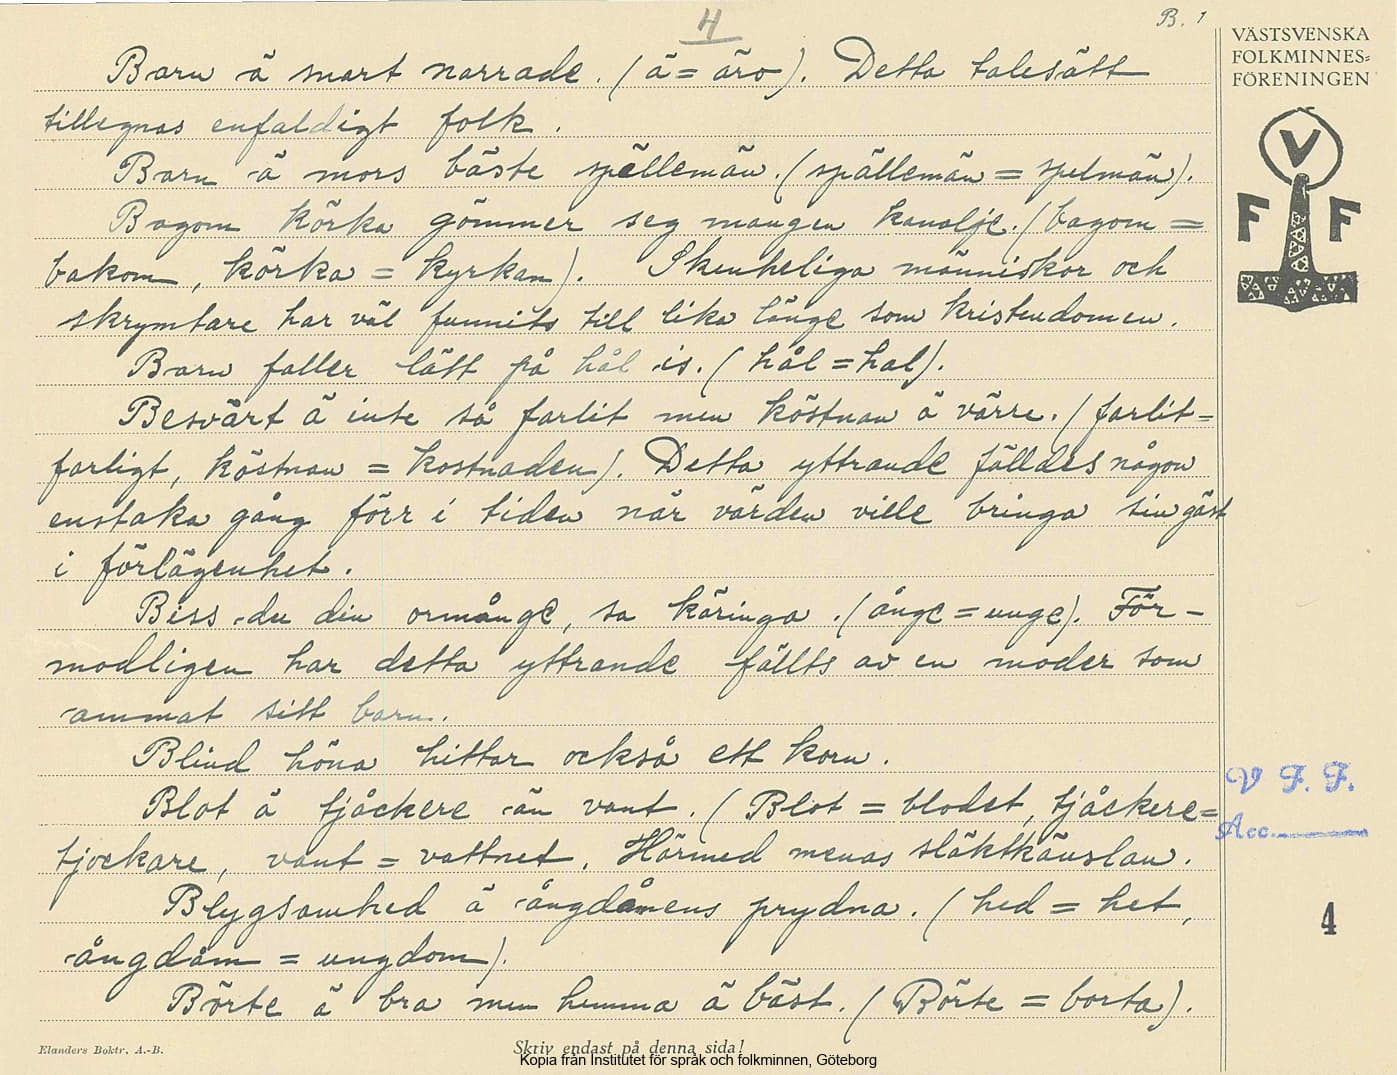 H
B. 1
VÄSTSVENSKA
FOLKMINNES=
FÖRENINGEN
V
F F
Barn ä snart narrade. (ä = äro). Detta talesätt
tillegnas enfaldigt folk.
Barn ä mors bäste spällemän. (spällemän = spelmän).
Bagom körka gömmer seg mangen kanalje. (bagom =
bakom, körka = kyrkan). Skenheliga människor och
skrymtare har väl funnits till lika länge som kristendomen.
Barn faller lätt på hål is. (hål = hal).
Besvärt ä inte så farlit men köstnan ä värre. (farlit =
farligt, köstnan = kostnaden). Detta yttrande fälldes någon
enstaka gång förr i tiden när värden ville bringa sin gäst
i förlägenhet.
Biss du din ormånge, sa käringa. (ånge = unge). För-
modligen har detta yttrande fällts av en moder som
ammat sitt barn.
Blind höna hittar också ett korn.
Blot ä tjåckere än vant. (Blot = blodet, tjåckere =
tjockare, vant = vattnet. Härmed menas släktkänslan.
Blygsamhed ä ångdåmens prydna. (hed = het,
ångdåm = ungdom).
Börte ä bra men hemma ä bäst. (Börte = borta).
V. F. F.
Acc.
4
Elanders Boktr. A.-B.
Skriv endast på denna sida!
Kopia från Institutet för språk och folkminnen, Göteborg